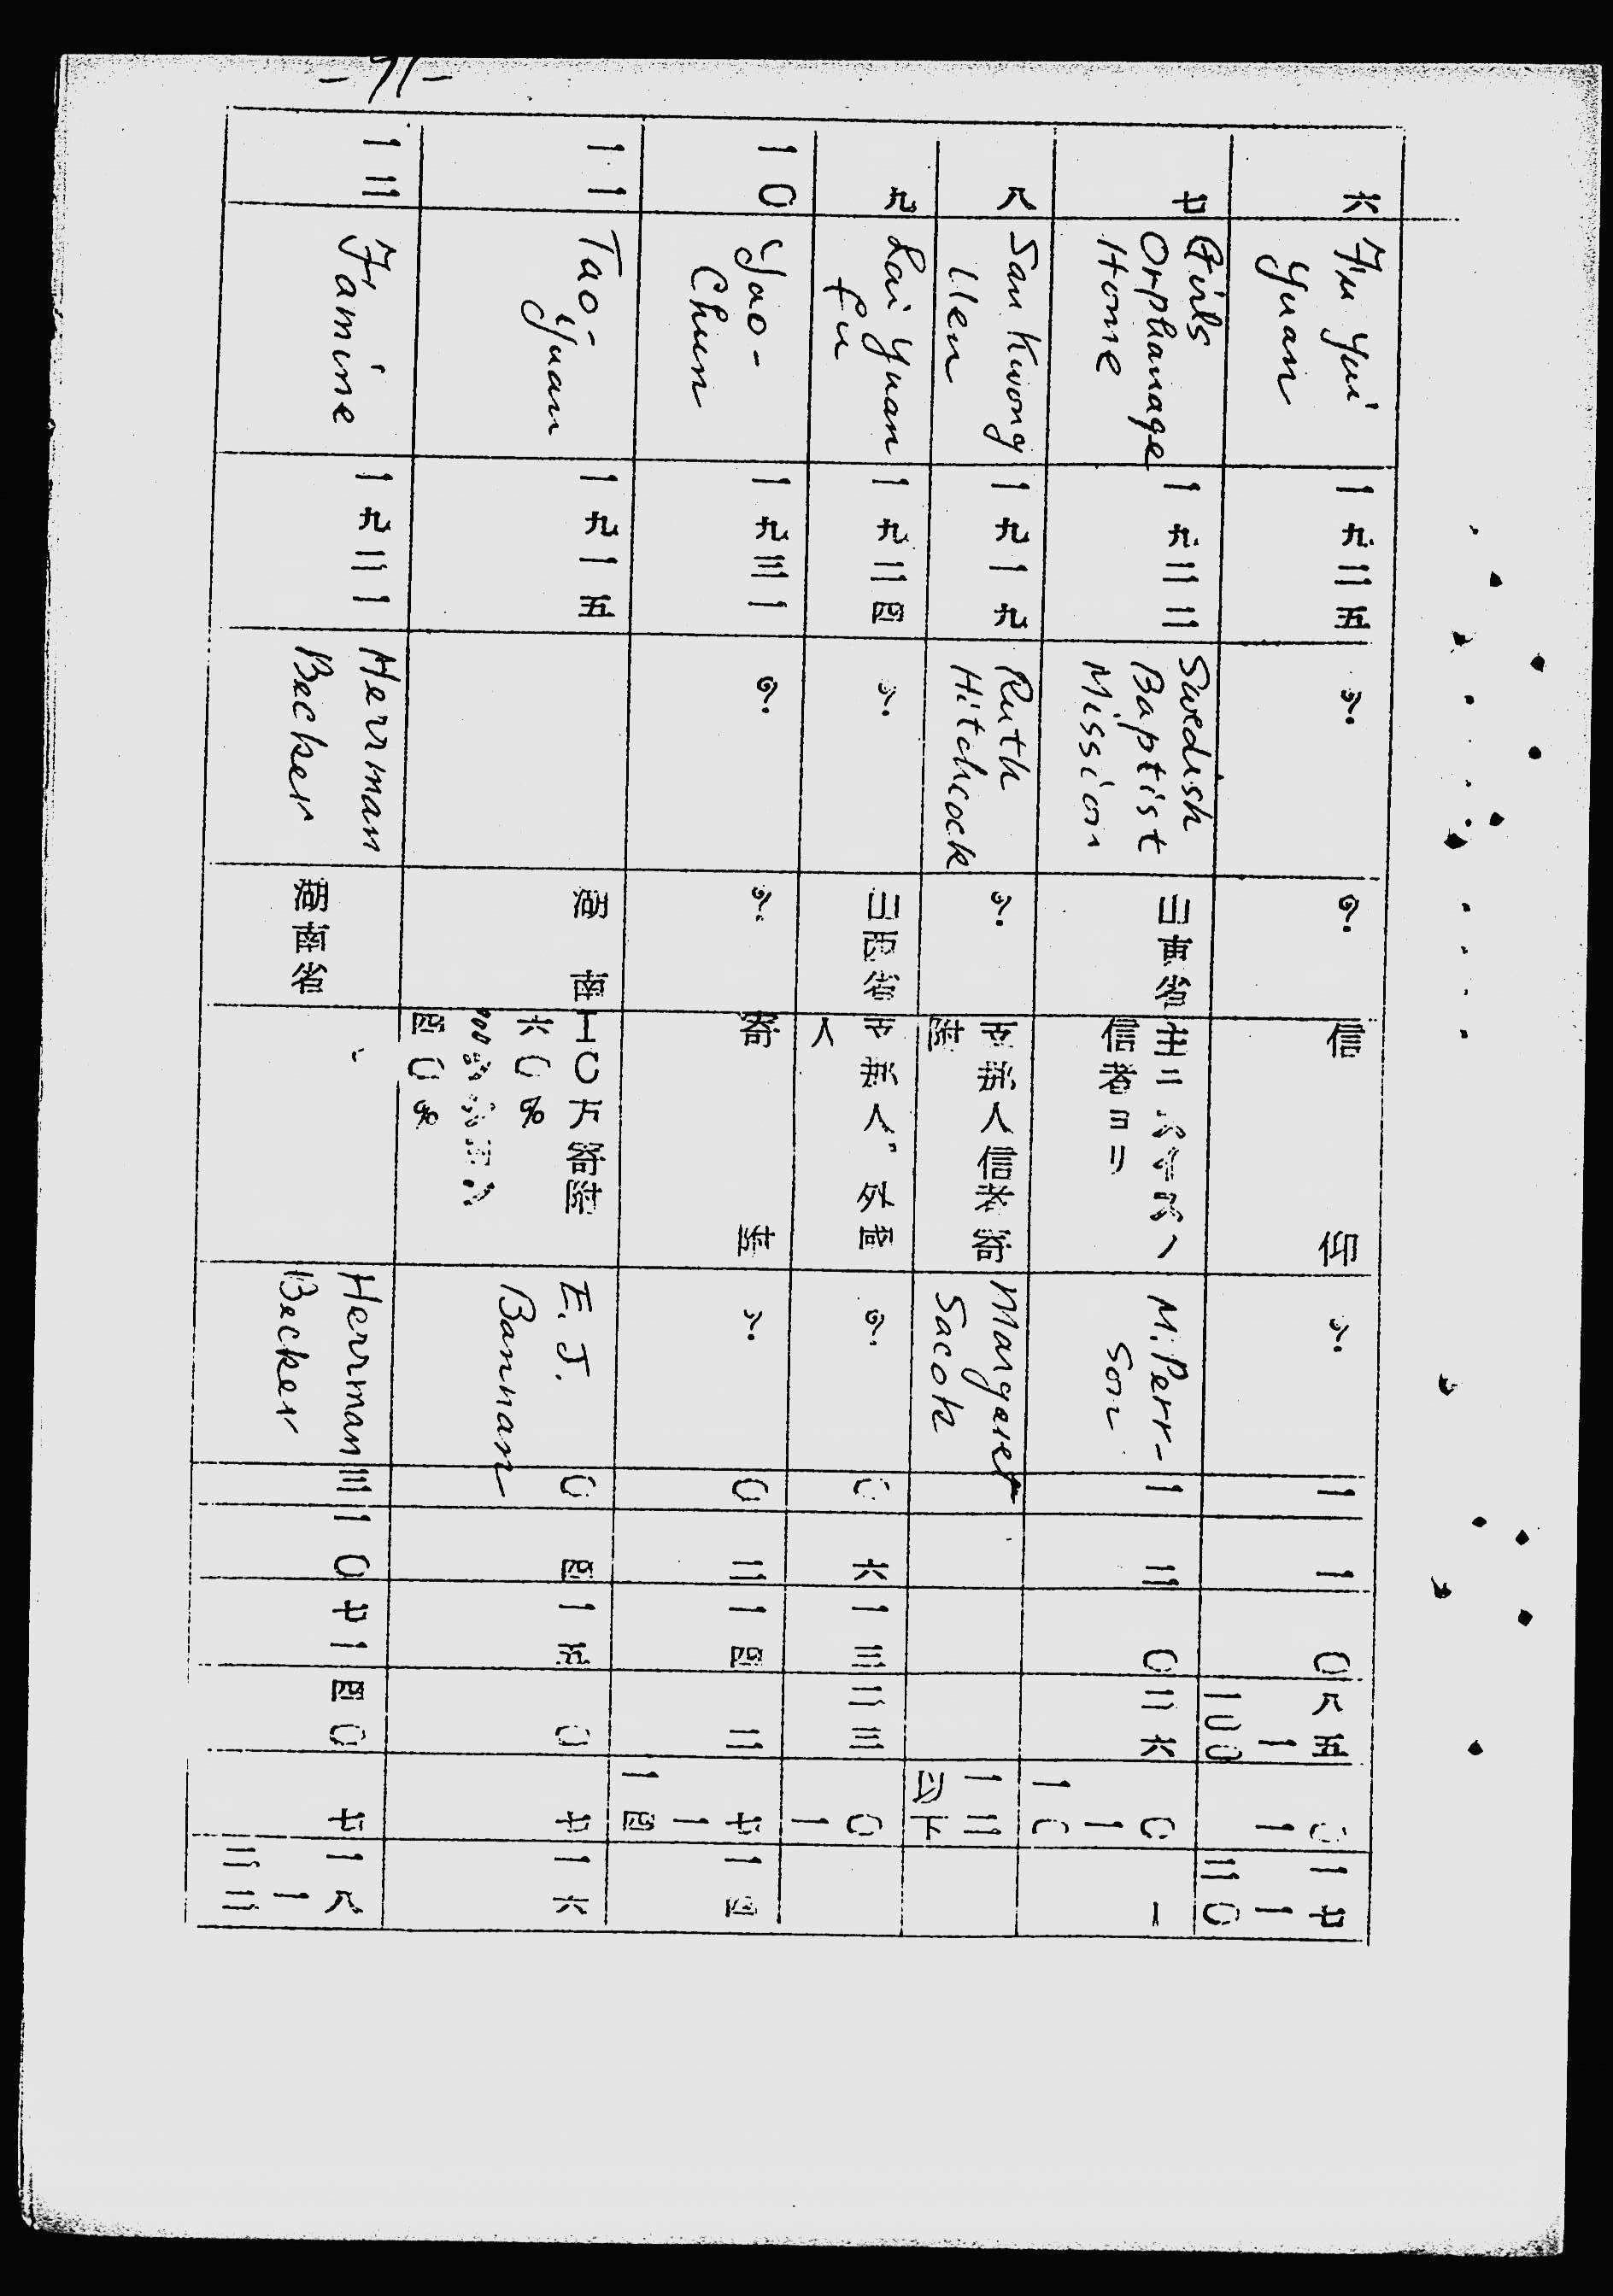 -71-
六
Fu Yui
Yuan
一九二五
?
?
信仰
?
一
一
〇
八五
一
二〇〇
〇
一
一七
一
三〇
七
Girls
Orphanage
Home
一九二二
Swedish
Baptist
Mission
山東省
主ニスイスノ
信者ヨリ
M. Perr-
son
一
三
〇
二六
〇
一
一〇
一
八
San Kwong
Uen
一九一九
Ruth
Hitchcock
?
支那人信者寄
附
Margaret
Sacok
一二
以下
九
Lai Yuan
fu
一九二四
?
山西省
支那人、外國
人
?
〇
六
一三
二三
〇
一
一〇
Yao-
Chun
一九三一
?
?
寄
?
〇
二
一四
二
七
一
一四
一四
一一
Tao-
Yuan
一九一五
湖南
IC方寄附
六〇%
四〇%
E. J.
Bannan
〇
四
一五
〇
七
一六
一二
Famine
一九二一
Herrman
Becker
湖南省
Herrman
Becker
三
一〇
七一
四〇
七
一八
一